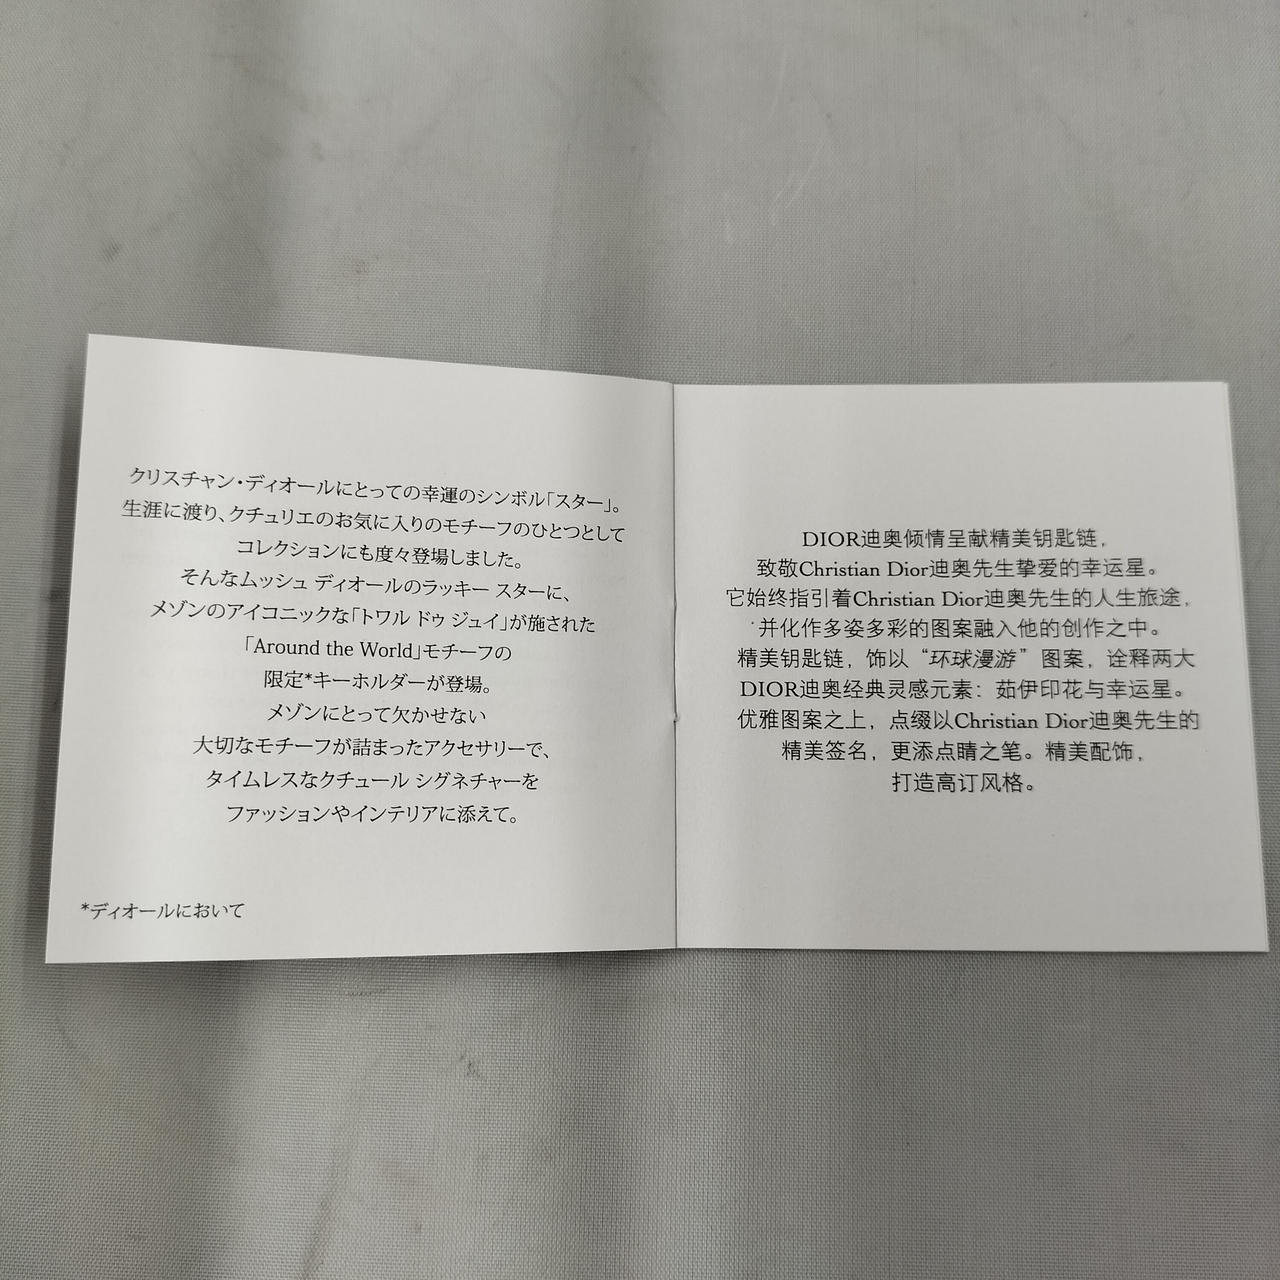 クリスチャン・ディオールにとっての幸運のシンボル「スター」。
生涯に渡り、クチュリエのお気に入りのモチーフのひとつとして
コレクションにも度々登場しました。
そんなムッシュ ディオールのラッキー スターに、
メゾンのアイコニックな「トワル ドゥ ジュイ」が施された
「Around the World」モチーフの
限定*キーホルダーが登場。
メゾンにとって欠かせない
大切なモチーフが詰まったアクセサリーで、
タイムレスなクチュール シグネチャーを
ファッションやインテリアに添えて。
*ディオールにおいて
DIOR迪奥倾情呈献精美钥匙链，
致敬Christian Dior迪奥先生挚爱的幸运星。
它始终指引着Christian Dior迪奥先生的人生旅途，
并化作多姿多彩的图案融入他的创作之中。
精美钥匙链，饰以“环球漫游”图案，诠释两大
DIOR迪奥经典灵感元素：茹伊印花与幸运星。
优雅图案之上，点缀以Christian Dior迪奥先生的
精美签名，更添点睛之笔。精美配饰，
打造高订风格。